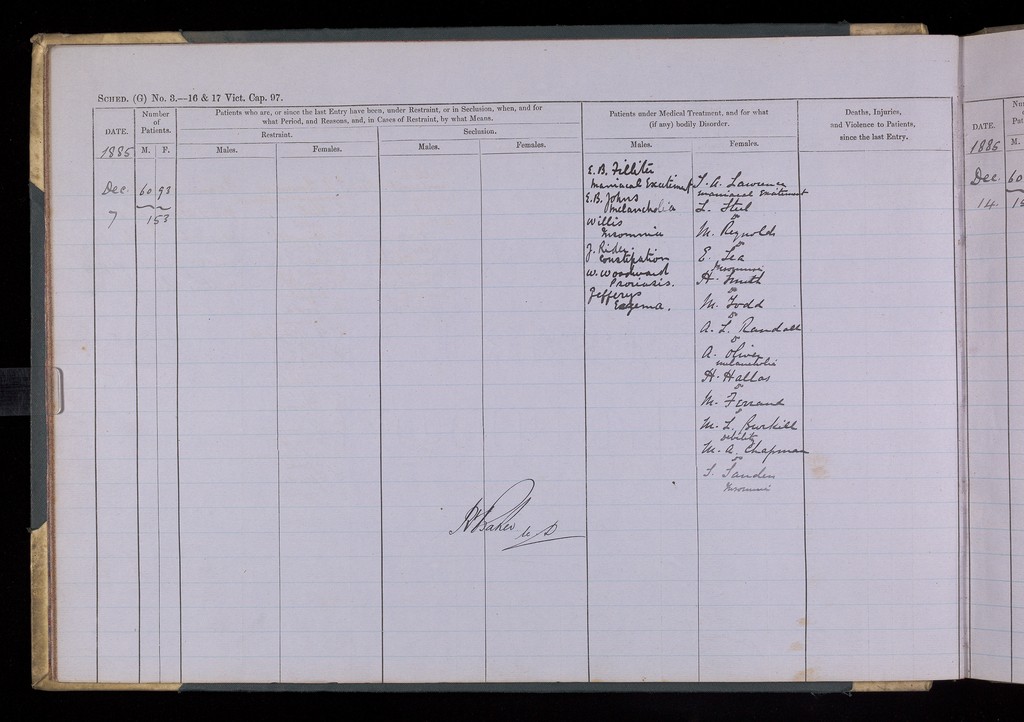 SCHED. (G) No. 3.—16 & 17 Vict. Cap. 97.
DATE.
Number of Patients.
Patients who are, or since the last Entry have been, under Restraint, or in Seclusion, when, and for
what Period, and Reasons, and, in Cases of Restraint, by what Means.
Patients under Medical Treatment, and for what
(if any) bodily Disorder.
Deaths, Injuries,
and Violence to Patients,
since the last Entry.
Restraint.
Seclusion.
1885
M. F.
Males.
Females.
Males.
Females.
Males.
Females.
Dec 60 93
7 153
E. B. Filliter
Maniacal Excitement
E. B. Johns
Melancholia
Willis
Insomnia
J. Rider
Constipation
W. Woodward
Psoriasis.
Jefferys
Eczema.
A. Lawrence
maniacal Excitement
L. Steel
Do
M. Reynolds
Do
E. Lea
Insomnia
H. Smith
Do
M. Todd
Do
A. L. Randall
Do
A. Oliver
melancholia
H. Hallas
Do
M. Ferrand
Do
M. L. Burkill
debility
M. A. Chapman
Do
Insomnia
Baker
DATE.
1885
M.
Dec 60
14